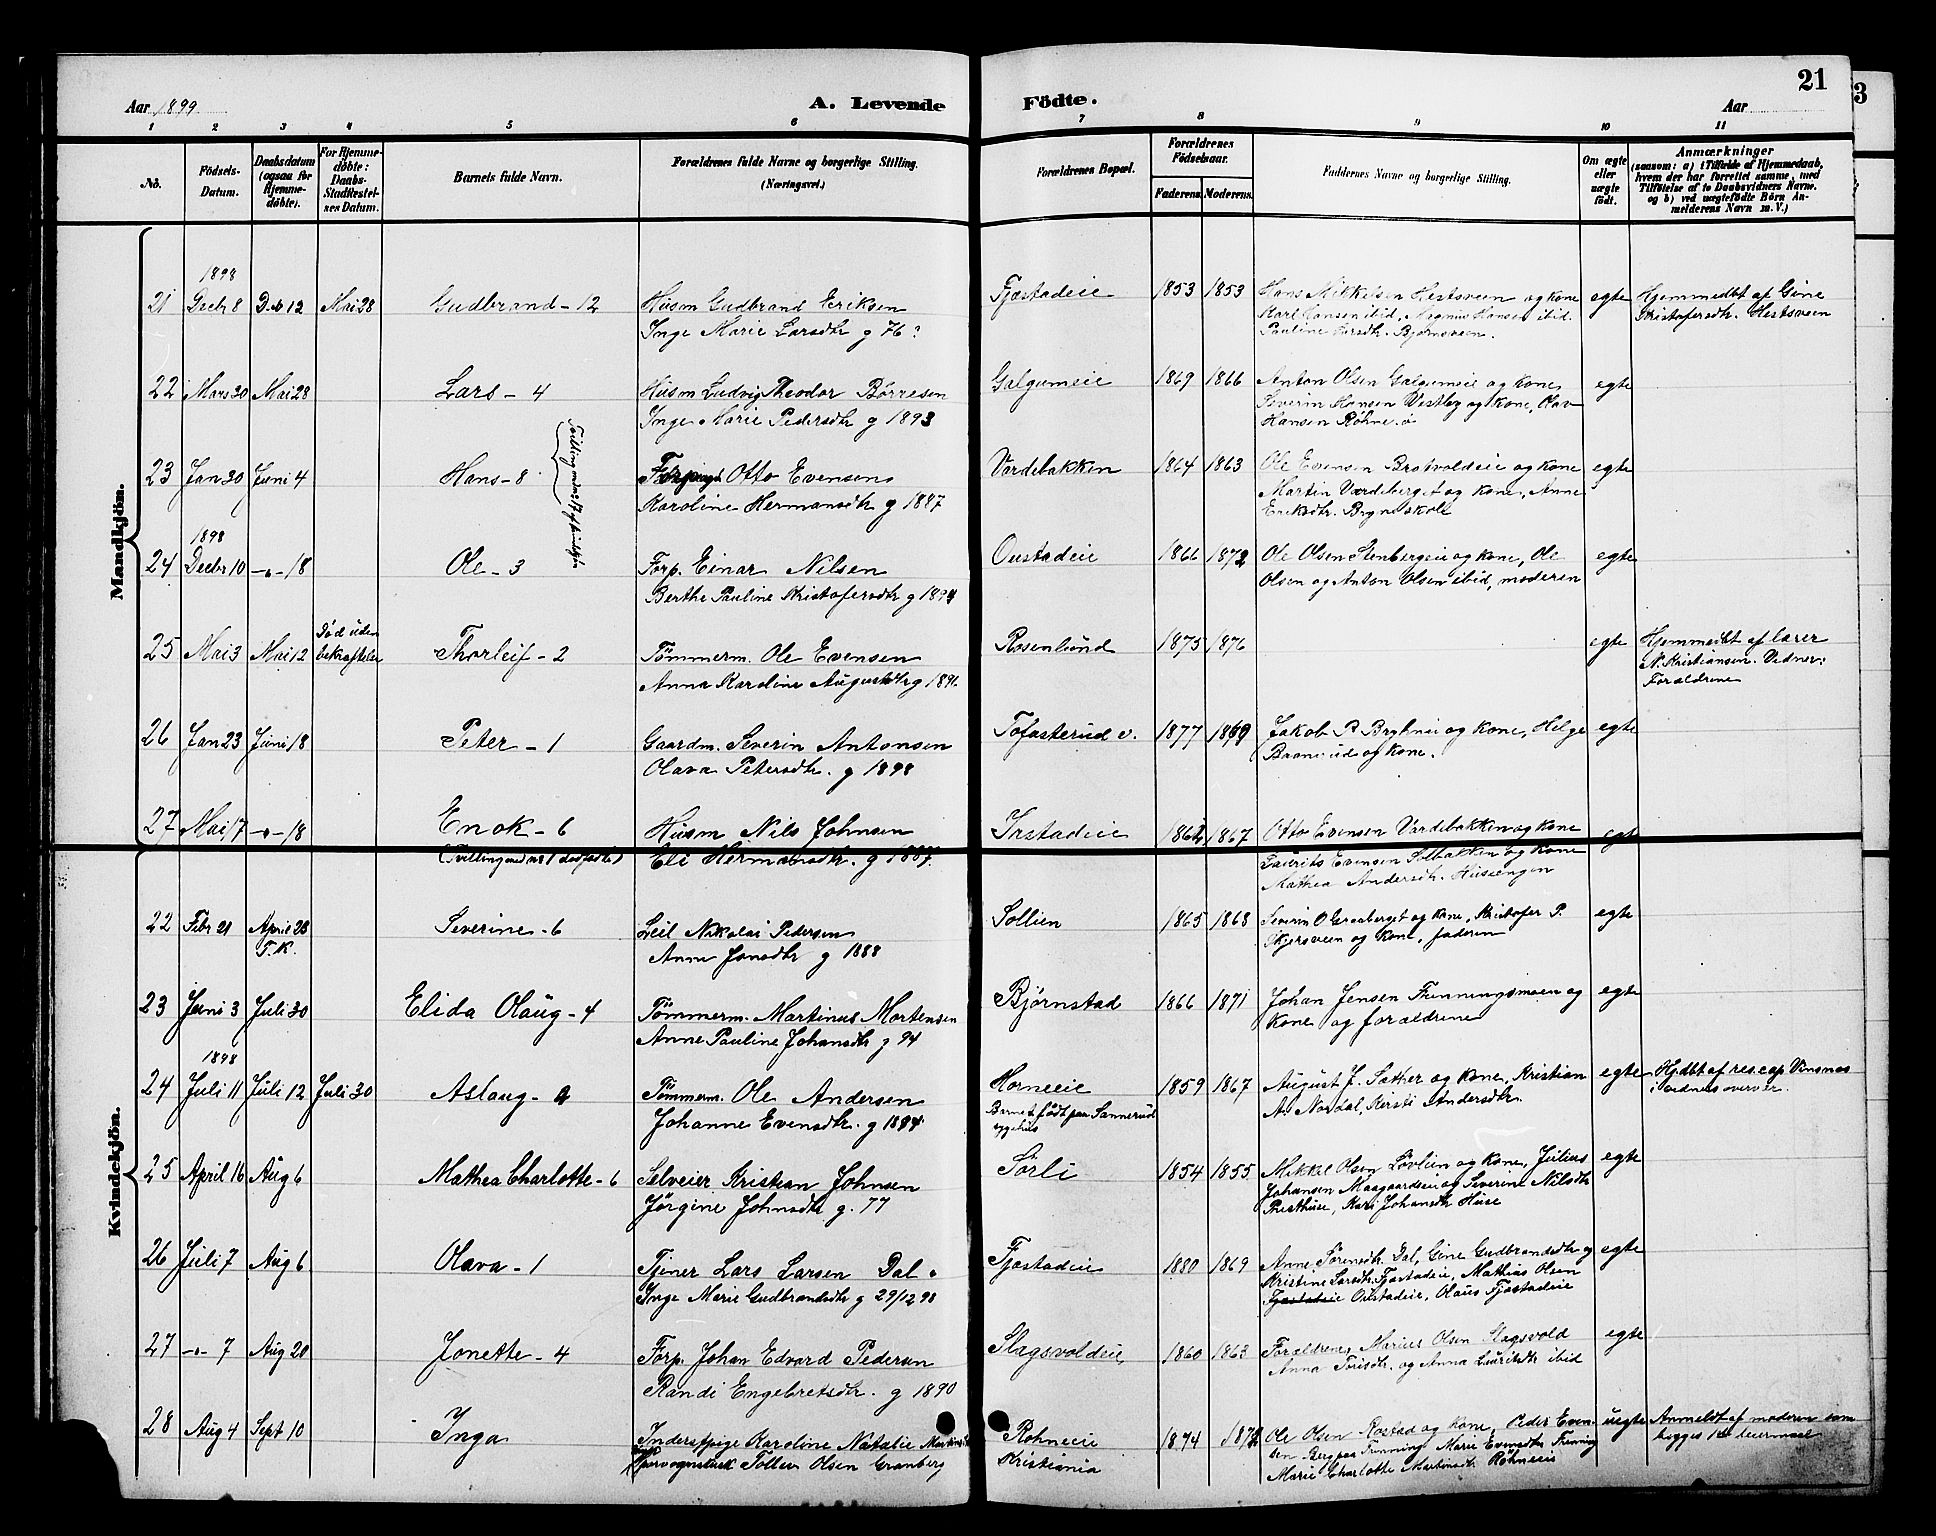 21
3
Aar 1899
A. Levende Födte.
Aar
1 2 3 4 5 6 7 8 9 10 11
No.
Födsels-Datum.
Daabsdatum (ogsaa for Hjemme-döbte).
For Hjemme-döbte: Daabs-Stadfæstel-ses Datum.
Barnets fulde Navn.
Forældrenes fulde Navne og borgerlige Stilling.
(Næringsvei.)
Forældrenes Bopæl.
Forældrenes Födselsaar.
Faderens. Moderens.
Faddernes Navne og borgerlige Stilling.
Om ægte eller uægte födt.
Anmærkninger
(saasom: a) i Tilfælde af Hjemmedaab, hvem der har forrettet samme, med Tilföielse af to Daabsvidners Navne, og b) ved uægtefödte Börn Anmelderens Navn m. V.)
Mandkjön.
1898
21 Decbr 8 Deb 12 Mai 28 Gudbrand - 12 Husm Gudbrand Eriksen Fjæstadeie 1853 1853 Hans Mikkelsen Hestsveen og kone egte Hjemmedbt af Gine
Inge Marie Larsdtr g 76: Karl Hansen ibid, Magnus Hansen ibid. Kristofersdtr. Hestsveen
Pauline Larsdtr. Bjørnsveen.
22 Mars 30 Mai 28 Lars - 4 Husm Ludvig Theodor Børresen Galgumeie 1869 1866 Anton Olsen Galgumeie og kone, egte
Inge Marie Pedersdtr g 1893 Severin Hansen Vestby og kone, Olav
Hansen Røhne. ø
23 Jan 30 Juni 4 Hans - 8 Otto Evensen Vardebakken 1864 1863 Ole Evensen Brotvoldeie og kone egte
Karoline Hermansdtr g 1887 Martin Vardeberget og kone, Anne
Eriksdtr. Bryn skole
1898
24 Decbr 10 -"- 18 Ole - 3 Forp. Einar Nilsen Oustadeie 1866 1872 Ole Olsen Stenbergeie og kone, Ole egte
Berthe Pauline Kristofersdtr g 1894 Olsen og Anton Olsen ibid, moderen
25 Mai 3 Mai 12 Død uden bekræftelse Thorleif - 2 Tømmerm. Ole Evensen Rosenlund 1875 1876 egte Hjemmedbt af lærer
Anna Karoline Augustdtr g 189 N. Kristiansen. Vidner:
Forældrene
26 Jan 23 Juni 18 Peter - 1 Gaardm. Severin Antonsen Tofasterud v. 1877 Jakob P. Bryhnie og kone, Helge egte
Olava Petersdtr. g 1898 og kone.
27 Mai 7 -"- 18 Enok - 6 Husm Nils Johnsen 1867 Otto Evensen Vardebakken og kone egte
(Tvilling med no 1 dødfødte) Eli Hermansdtr. g 1887. Laurits Evensen Solbakken og kone
Mathea Andersdtr. Husengen
Kvindekjön.
22 Febr 21 April 23 Severine - 6 Leil Nikolai Pedersen Sollien 1865 1868 Severin O Graaberget og kone, Kristofer P. egte
T.K. Anne Jonsdtr g 1888 Skjersveen og kone, faderen
23 Juni 3 Juli 30 Elida Olaug - 4 Tømmerm. Martinus Mortensen Bjørnstad 1866 1871 Johan Jensen Freningsmoen og egte
Anne Pauline Johansdtr g 94 kone og forældrene
1898
24 Juli 11 Juli 12 Juli 30 Aslaug - 9 Tømmerm. Ole Andersen Horneeie 1859 1867 August J. Sæther og kone, Kristian egte Hjdbt af res. cap Vinsnes
Johanne Evensdtr. g 1884 Barnet født paa Sannerud sygehus A. Nordal, Kersti Andersdtr. i vidners overvær.
25 April 16 Aug 6 Mathea Charlotte - 6 Selveier Kristian Johnsen Sørli 1854 1855 Mikkel Olsen Løvlien og kone, Julius egte
Jørgine Johnsdtr g. 77 Johansen Maagaardseie og Severine Nilsdtr
Presthuse, Kari Johansdtr Huse
26 Juli 7 Aug 6 Olava - 1 Tjener Lars Larsen Dal Fjæstadeie 1880 1869 Anne Sørensdtr Dal, Gine Gudbrandsdtr og egte
Inge Marie Gudbrandsdtr g 29/12 98 Kristine Larsdtr. Fjæstadeie, Mathias Olsen
Fjæstadeie Oustadeie, Olaus Fjæstadeie
27 -"- 7 Aug 20 Jonette - 4 Forp. Johan Edvard Pedersen Slagsvoldeie 1860 1863 Forældrene, Marius Olsen Slagsvold egte
Randi Engebretsdtr. g 1890 Anna og Anna Lauritsdtr ibid
28 Aug 4 Sept 10 Inga Inderstpige Karoline Natalie Røhneeie 1874 Ole Olsen Rostad og kone, Peder Even- uegte Anmeldt af moderen som
Sporvognskusk Tollev Olsen Granberg Kristiania sen Marie Evensdtr begges 1ste leiermaal
Marie Charlotte Martinsdtr Røhneeie